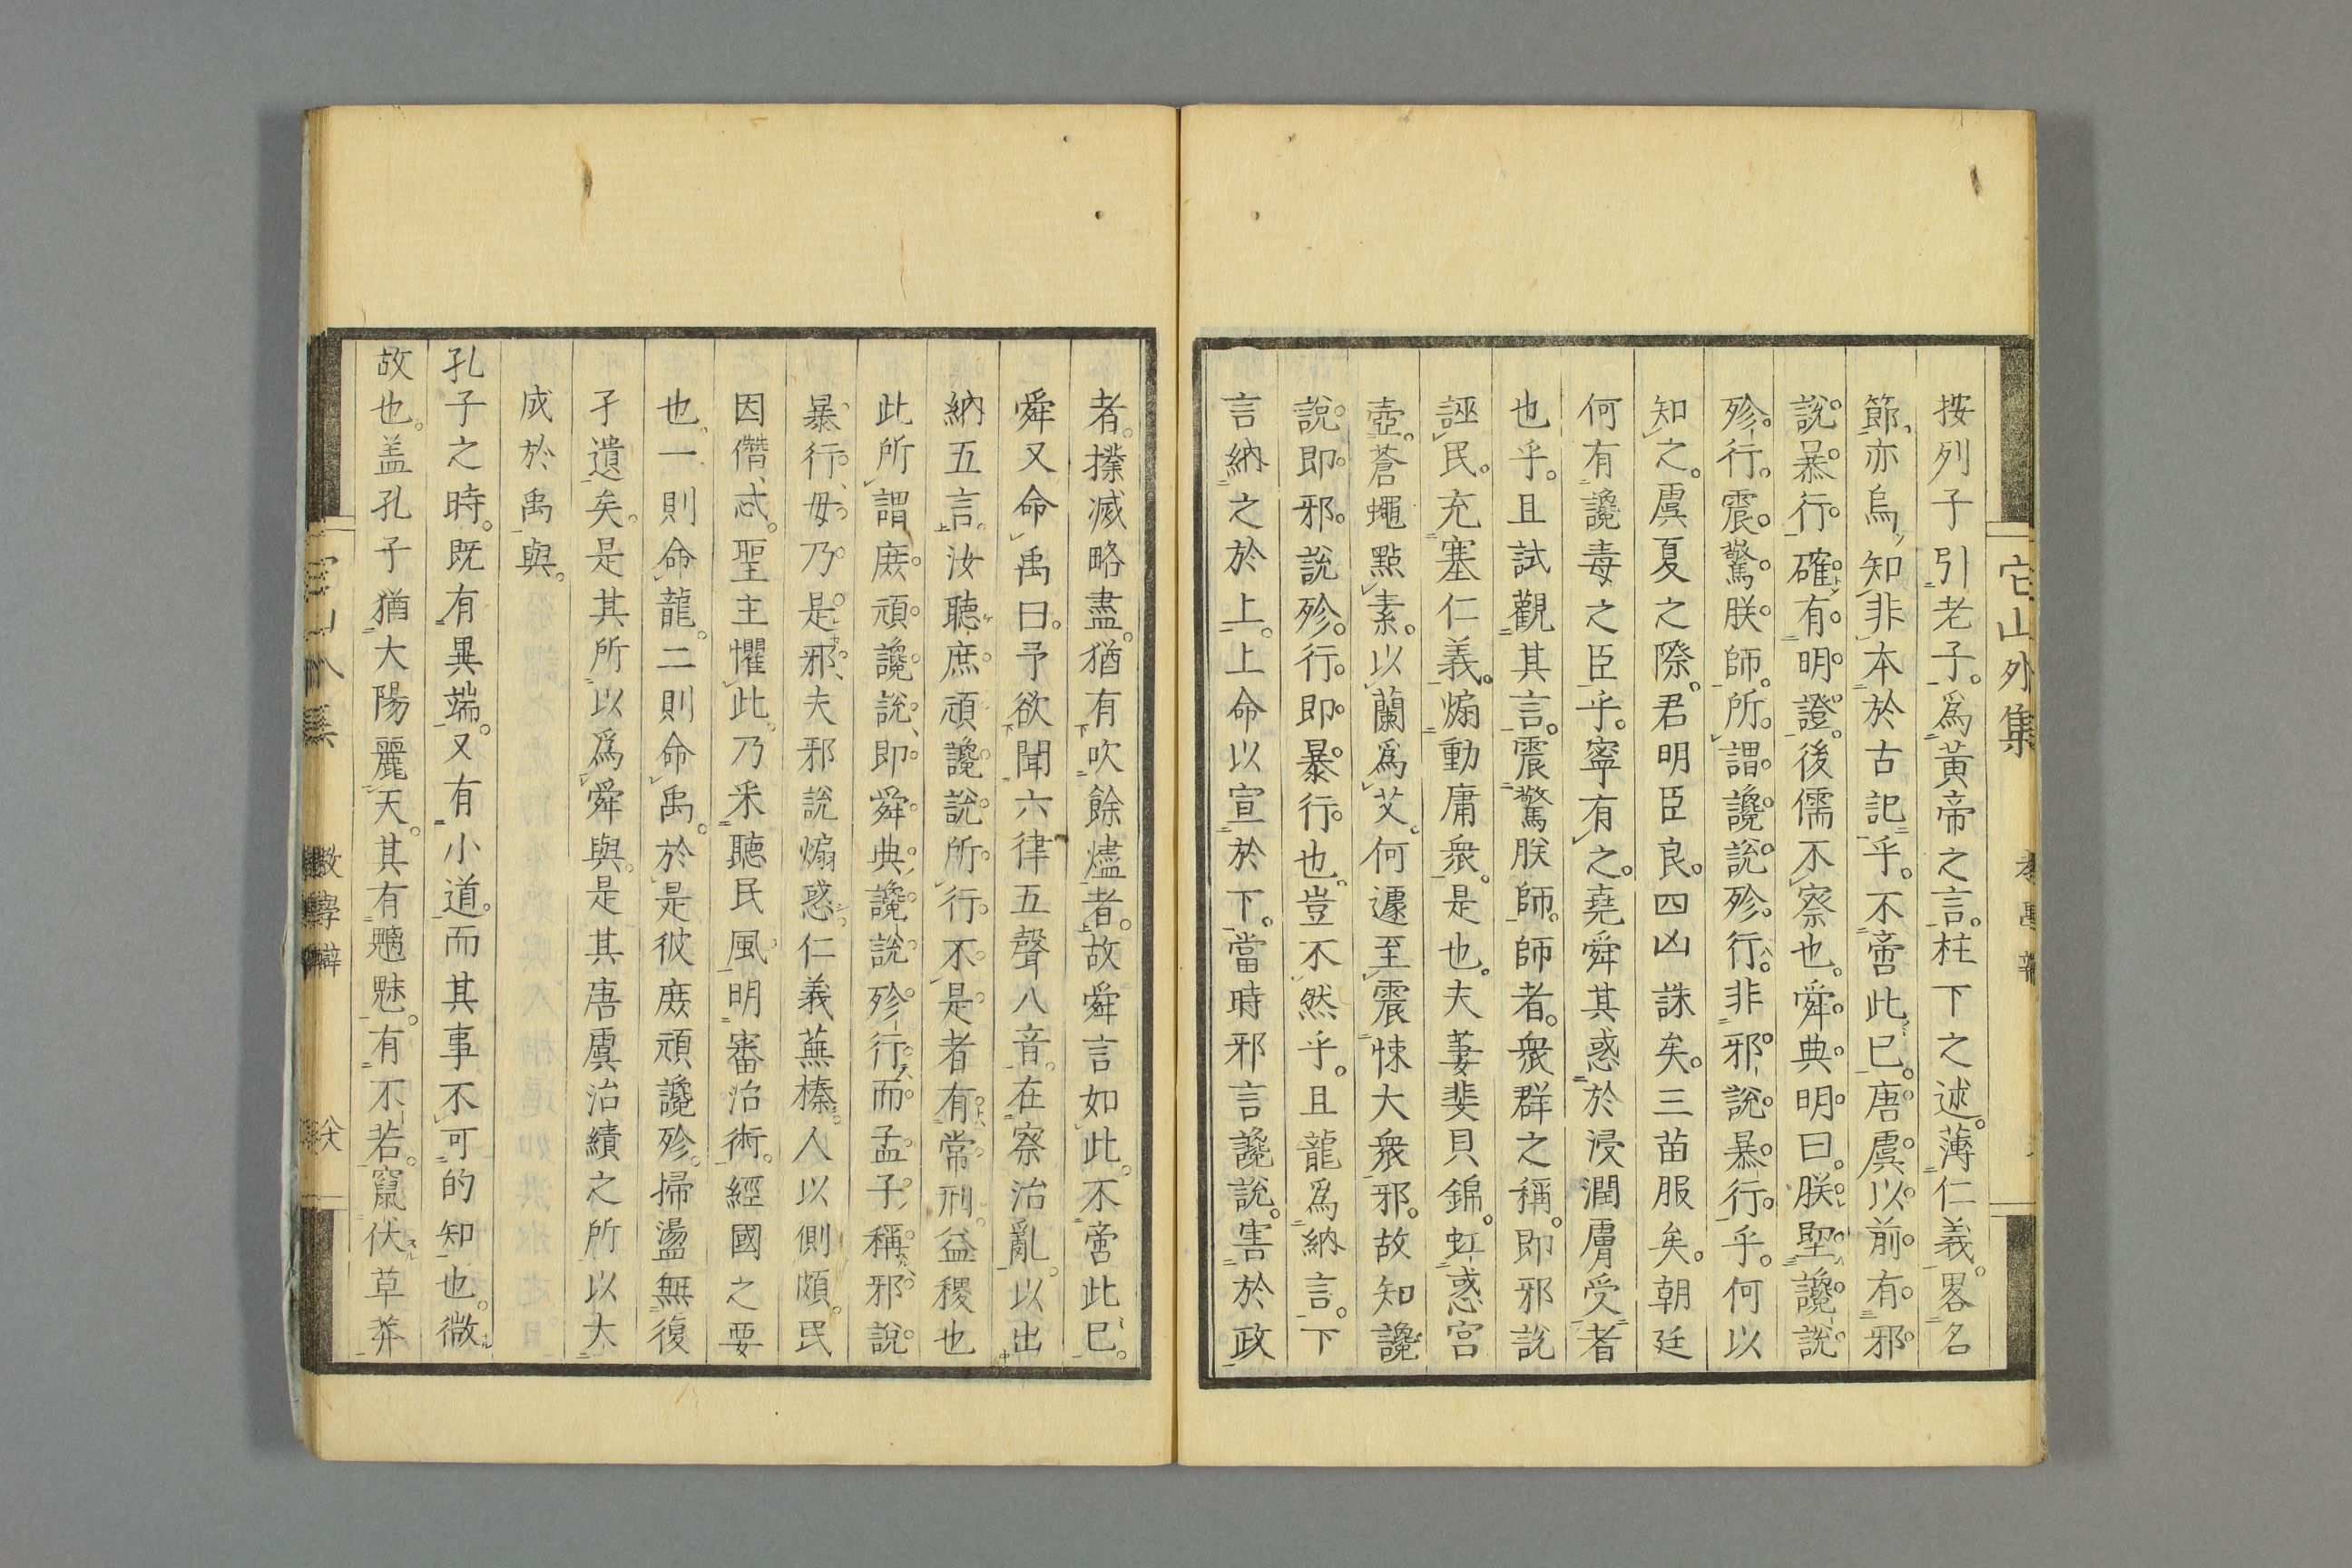 它山外集
按列子引老子。爲黃帝之言。柱下之述。薄仁義。畧名
節、亦烏知非本於古記乎。不啻此已。唐虞以前有邪
說暴行。確有明證。後儒不察也。舜典明曰。朕堲讒說
殄行。震驚朕師。所謂讒說殄行。非邪說暴行乎。何以
知之。虞夏之際。君明臣良。四凶誅矣。三苗服矣。朝廷
何有讒毒之臣乎。寧有之。堯舜其惑於浸潤膚受者
也乎。且試觀其言。震驚朕師。師者。衆群之稱。即邪說
誣民。充塞仁義。煽動庸衆。是也。夫萋斐貝錦。虹惑宮
壺。蒼蠅點素。以蘭爲艾。何遽至震悚大衆邪。故知讒
說即邪說殄行。即暴行也。豈不然乎。且龍爲納言。下
言納之於上。上命以宣於下。當時邪言讒說。害於政
者。撲滅略盡。猶有吹餘燼者。故舜言如此。不啻此已。
舜又命禹曰。予欲聞六律五聲八音。在察治亂。以出
納五言。汝聽庶頑讒說所行不是者有常刑。益稷也
此所謂庶頑讒說、即舜典讒說殄行。而孟子稱邪說
暴行、毋乃是邪、夫邪說煽惑仁義蕪榛。人以側頗。民
因僭忒。聖主懼此。乃采聽民風。明審治術。經國之要
也、一則命龍。二則命禹。於是彼庶頑讒殄。掃盪無復
孑遺矣。是其所以爲舜與。是其唐虞治績之所以大
成於禹與。
孔子之時。既有異端。又有小道。而其事不可的知也。微
故也。盖孔子猶大陽麗天。其有魑魅。有不若。竄伏草莽
敎學辯